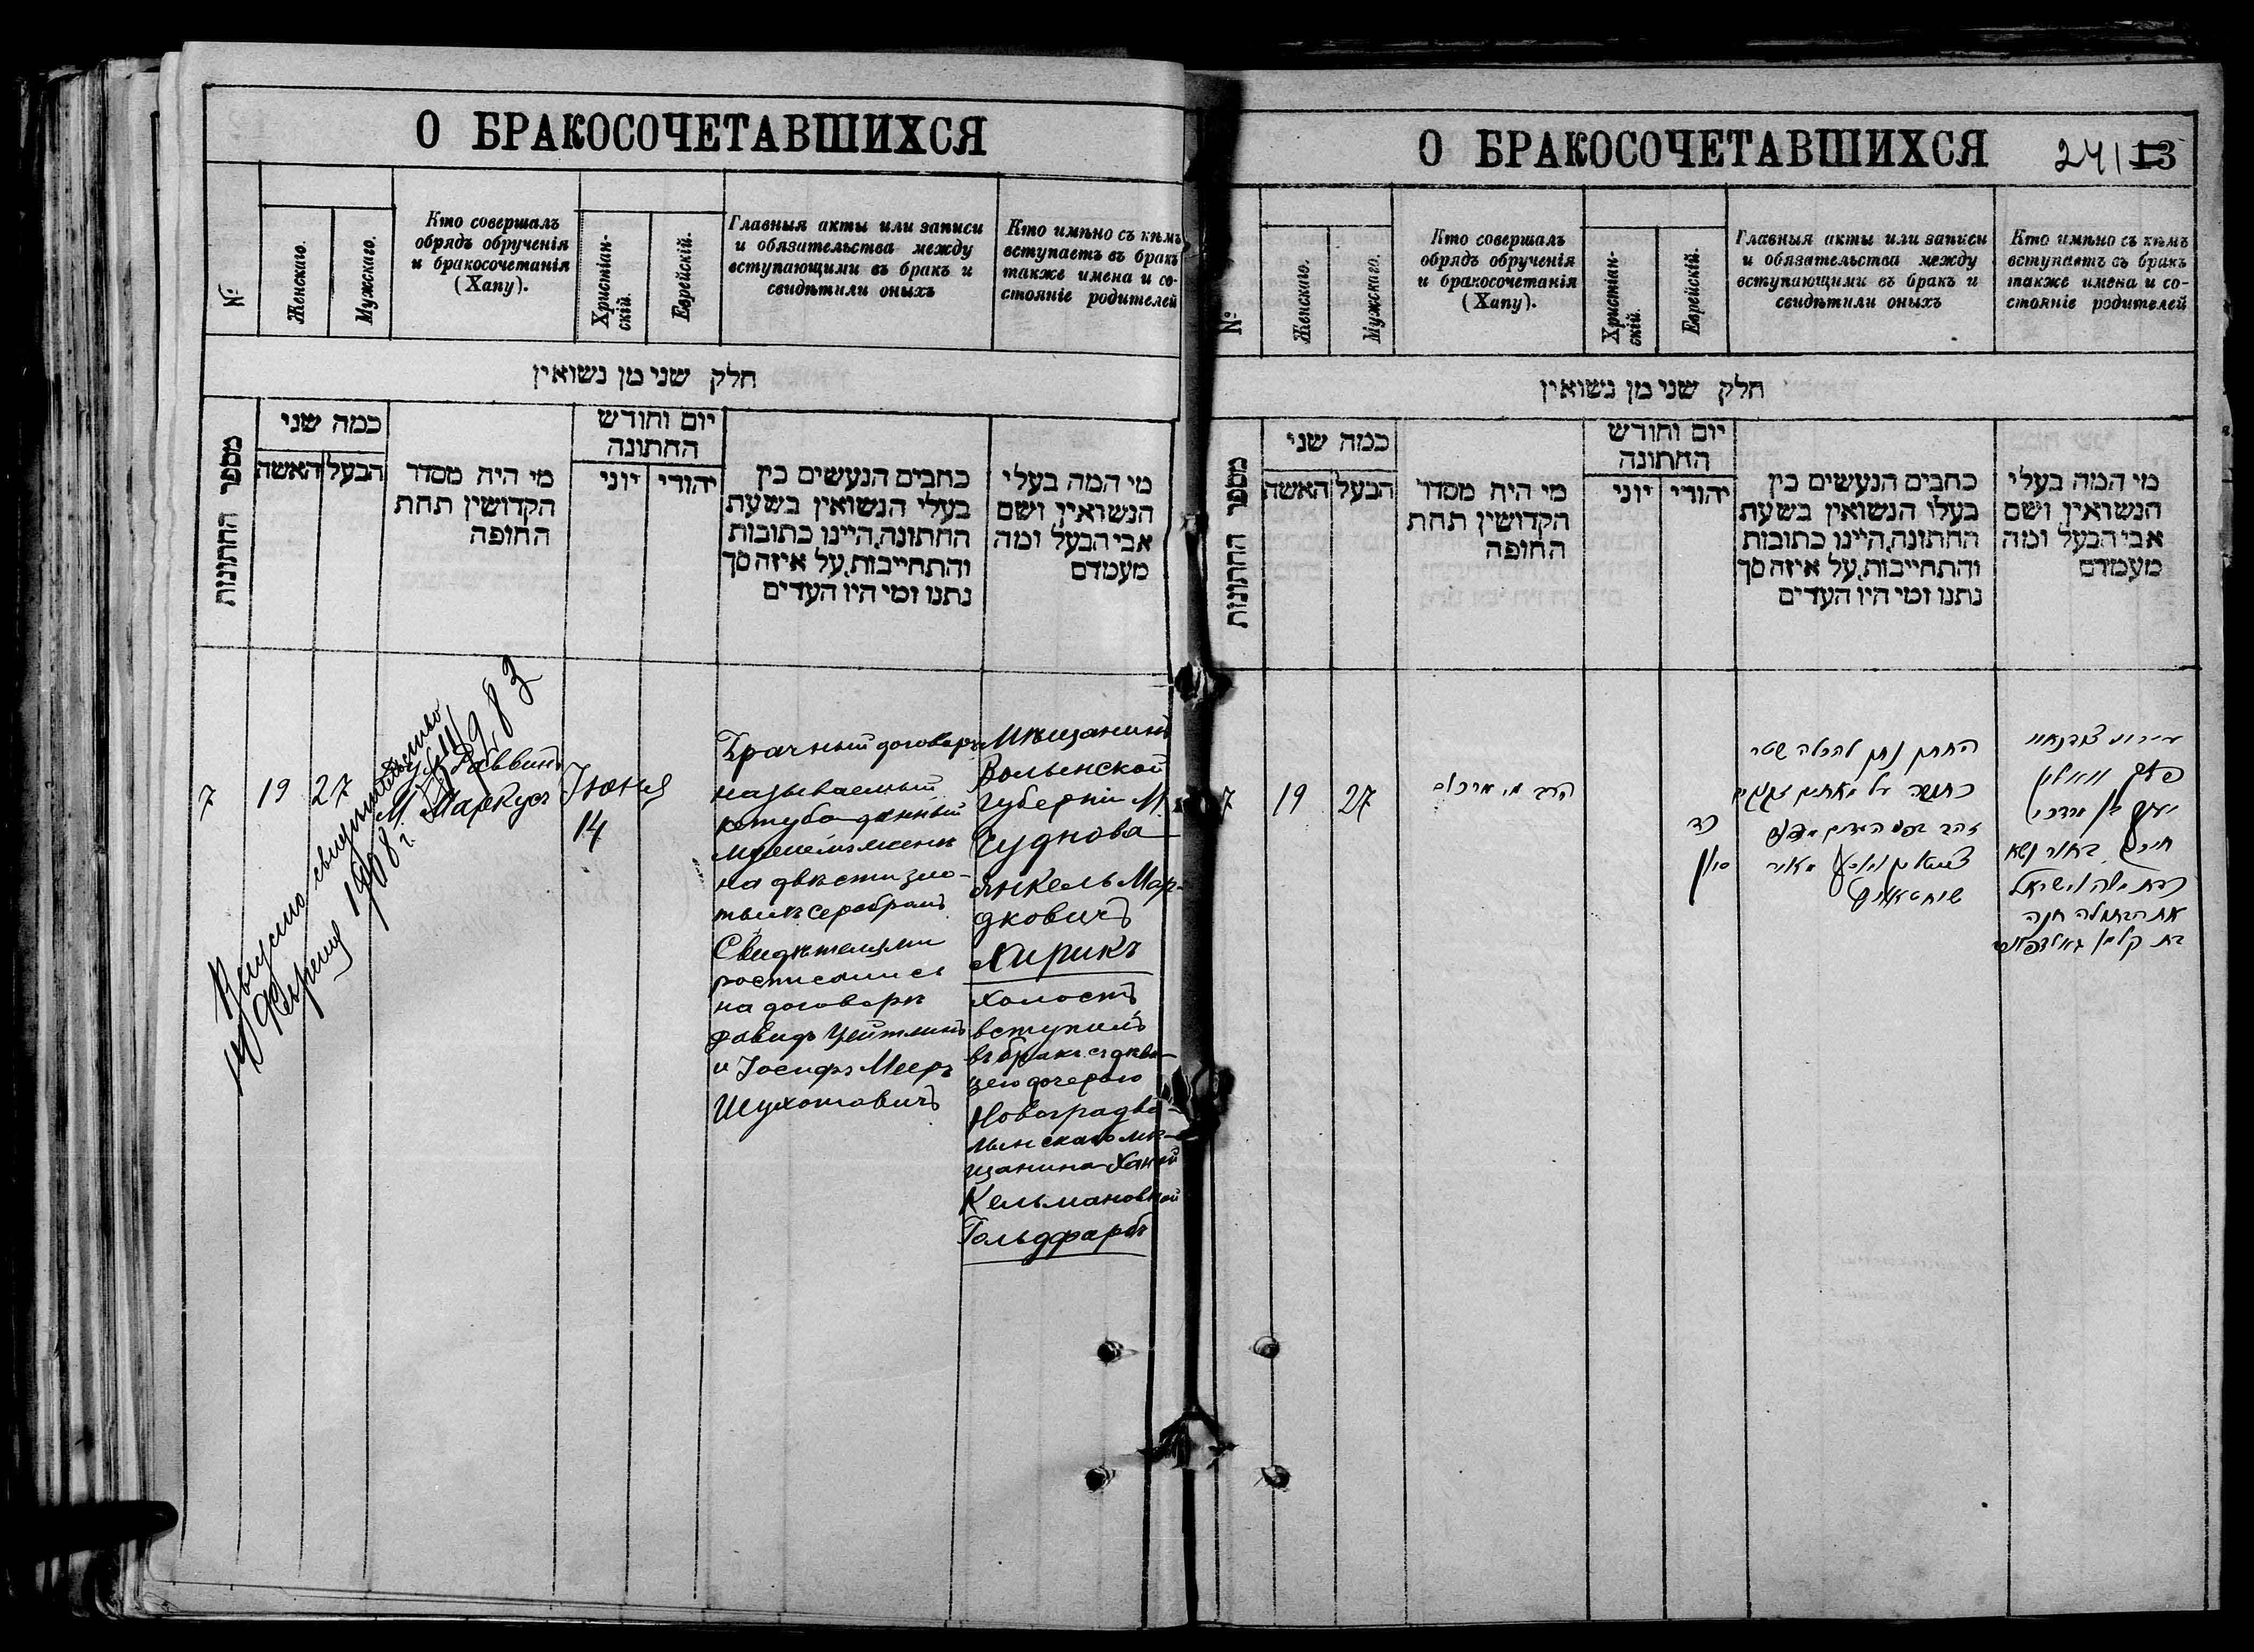 О БРАКОСОЧЕТАВШИХСЯ
№
Женскаго.
Мужскаго.
Кто совершалъ
обрядъ обрученія
и бракосочетанія
(Хапу).
Христіан-
скій.
Еврейскій.
Главныя акты или записи
и обязательства между
вступающими въ бракъ и
свидѣтили оныхъ
Кто имѣно съ кѣмъ
вступаетъ въ бракъ
также имена и со-
стояніе родителей
חלק שני מן נשואין
מספר החתונות
כמה שני
האשה
הבעל
מי היה מסדר
הקדושין תחת
החופה
יום וחודש
החתונה
יוני
יהודי
כתבים הנעשים בין
בעלי הנשואין בשעת
החתונה, היינו כתובות
והתחייבות, על איזה סך
נתנו ומי היו העדים
מי המה בעלי
הנשואין ושם
אבי הבעל ומה
מעמדם
7
19
27
Раввинъ
М. Маркусъ
Іюня
14
Брачный договоръ
называемый
кетуба данный
мужемъ женѣ
на двѣсти зло-
тыхъ серебромъ
Свидѣтелями
росписались
на договорѣ
Давидъ Цейтлинъ
и Іосифъ Мееръ
Шухотовичъ
Мѣщанинъ
Волынской
губерніи М.
Чуднова
Янкель Мор-
дковичъ
Лирикъ
холостъ
вступилъ
въ бракъ съ дѣви-
цею дочерью
Новоградво-
лынскаго мѣ-
щанина Ханой
Кельмановной
Гольдфарбъ
Выдано свидѣтельство
1908 г.
983
О БРАКОСОЧЕТАВШИХСЯ
24
13
№
Женскаго.
Мужскаго.
Кто совершалъ
обрядъ обрученія
и бракосочетанія
(Хапу).
Христіан-
скій.
Еврейскій.
Главныя акты или записи
и обязательства между
вступающими въ бракъ и
свидѣтили оныхъ
Кто имѣно съ кѣмъ
вступаетъ въ бракъ
также имена и со-
стояніе родителей
חלק שני מן נשואין
מספר החתונות
כמה שני
האשה
הבעל
מי היה מסדר
הקדושין תחת
החופה
יום וחודש
החתונה
יוני
יהודי
כתבים הנעשים בין
בעלי הנשואין בשעת
החתונה, היינו כתובות
והתחייבות, על איזה סך
נתנו ומי היו העדים
מי המה בעלי
הנשואין ושם
אבי הבעל ומה
מעמדם
7
19
27
הרב
כד
סיון
החתן נתן להכלה שטר
כתובה על מאתים זקוקים
יעקב בן מרדכי
בחור נשא
את הבתולה חנה